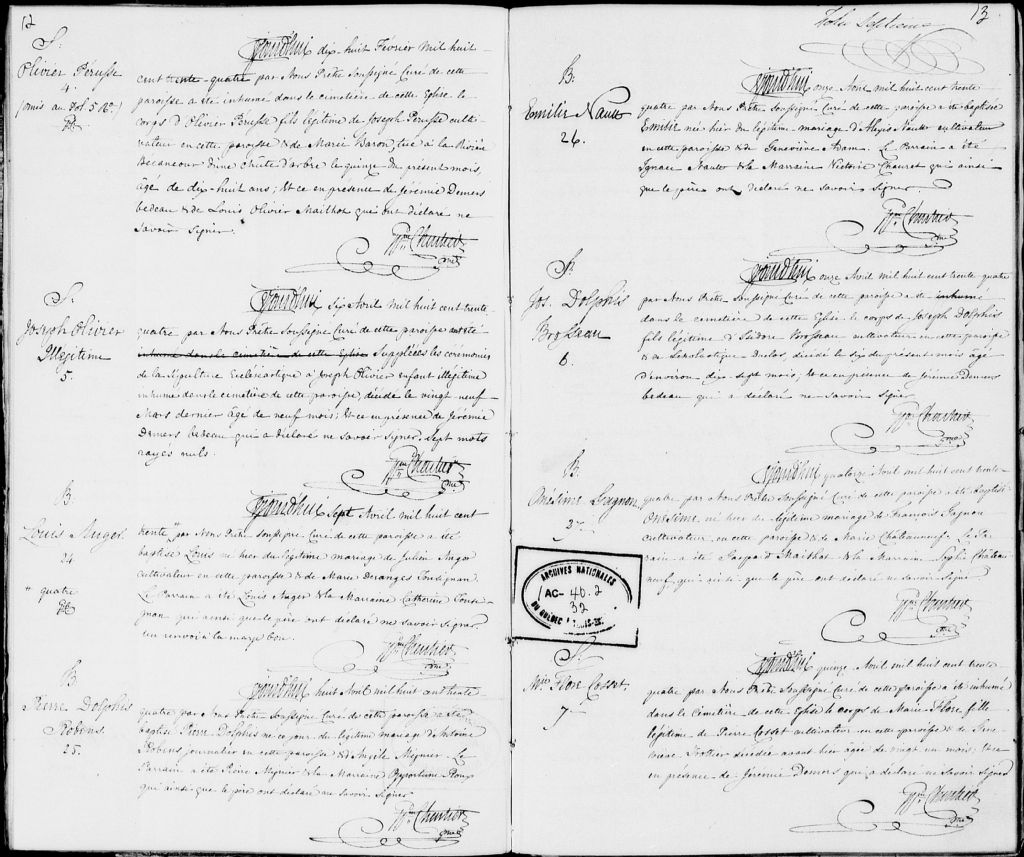 12
S.
Olivier Pérusse
4.
(omis au fol 5 Ro.)
Aujourdhui dix-huit Février mil huit
cent trente-quatre par Nous Prêtre Soussigné Curé de cette
paroisse a été inhumé dans le cimetière de cette Eglise le
corps d'Olivier Pérusse fils légitime de Joseph Pérusse culti-
vateur en cette paroisse & de Marie Baron, tué à la Rivière
Becancour d'une chûte d'arbre le quinze du présent mois,
âgé de dix-huit ans; Et ce en présence de Jérémie Demers
bedeau & de Louis Olivier Mailhot qui ont déclaré ne
savoir signer.
Chartier
Ptre
S.
Joseph Olivier
Illégitime
5.
Aujourdhui Six Avril mil huit cent trente-
quatre par Nous Prêtre Soussigné Curé de cette paroisse ont été
inhumé dans le cimetière de cette Eglise Suppléées les cérémonies
de la Sépulture Ecclésiastique à Joseph Olivier enfant illégitime
inhumé dans le cimetière de cette paroisse, décédé le vingt neuf
Mars dernier âgé de neuf mois; Et ce en présence de Jérémie
Demers bedeau qui a déclaré ne savoir signer. Sept mots
rayés nuls.
Chartier
Ptre
B.
Louis Auger
24
" quatre
Aujourdhui Sept Avril mil huit cent
trente " par Nous Prêtre Soussigné Curé de cette paroisse a été
baptisé Louis né hier du légitime mariage de Julien Auger
cultivateur en cette paroisse & de Marie Desanges Tousignan.
Le Parrain a été Louis Auger & la Marraine Catherine Tousi-
gnan qui ainsi que le père ont déclaré ne savoir signer.
Un renvoi à la marge bon.
Chartier
Ptre
B.
Pierre Dolphis
Robins
25.
Aujourdhui huit Avril mil huit cent trente
quatre par Nous Prêtre Soussigné Curé de cette paroisse a été
baptisé Pierre Dolphis né ce jour du légitime mariage de Antoine
Robins journalier en cette paroisse & d'Angèle Meunier. Le
Parrain a été Pierre Meunier & la Marraine
qui ainsi que le père ont déclaré ne savoir signer
Chartier
Ptre
Folio Septième
13
B.
Emilie Nault
26.
Aujourdhui onze Avril mil huit cent trente
quatre par Nous Prêtre Soussigné Curé de cette paroisse a été baptisée
Emilie née hier du légitime mariage d'Alexis Nault cultivateur
en cette paroisse & de Geneviève Adam. Le Parrain a été
Ignace Nault & la Marraine Victoire Chauret qui ainsi
que le père ont déclaré ne savoir signer.
Chartier
Ptre
S.
Jos. Dolphis
Brosseau
6.
Aujourdhui onze Avril mil huit cent trente quatre
par Nous Prêtre Soussigné Curé de cette paroisse a été inhumé
dans le cimetière de cette Eglise le corps de Joseph Dolphis
fils légitime d'Isidore Brosseau cultivateur en cette paroisse
& de Scholastique décédé le six du présent mois âgé
d'environ dix sept mois; Et ce en présence de Jérémie Demers
bedeau qui a déclaré ne savoir signer
Chartier
Ptre
B.
Onésime Gagnon
27.
Aujourdhui quatorze Avril mil huit cent trente
quatre par Nous Prêtre Soussigné Curé de cette paroisse a été baptisé
Onésime né hier du légitime mariage de François Gagnon
cultivateur en cette paroisse & de Marie Châteauneuf. Le Pa-
rain a été Gaspard Mailhot & la Marraine Sophie Château
neuf, qui ainsi que le père ont déclaré ne savoir signer
Chartier
Ptre
ARCHIVES NATIONALES
AC- 40.2
32
DU QUÉBEC
S.
Mie. Flore Cosset.
7
Aujourdhui quinze Avril mil huit cent trente
quatre par Nous Prêtre Soussigné Curé de cette paroisse a été inhumé
dans le Cimetière de cette Eglise le corps de Marie Flore fille
légitime de Pierre Cosset cultivateur en cette paroisse & de Gene-
viève Trottier décédée avant hier âgée de vingt un mois; Et ce
en présence de Jérémie Demers qui a déclaré ne savoir signer
Chartier
Ptre